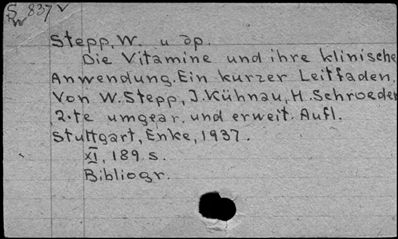 S 837 v
W
Stepp, W. и др.
Die Vitamine und ihre klinische
Anwendung. Ein kurzer Leitfaden.
Von W. Stepp, J. Kühnau, H. Schroeder
2-te umgear. und erweit. Aufl.
Stuttgart, Enke, 1937.
XI, 189 s.
Bibliogr.